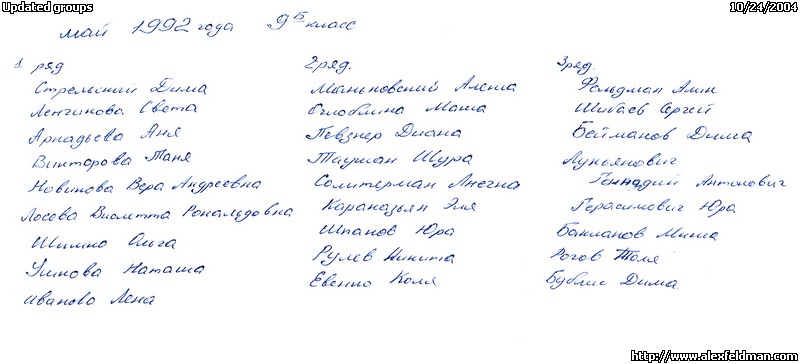 Updated groups
10/24/2004
май 1992 года 9Б класс
1 ряд
Стрельский Дима
Ленчикова Света
Аркадьева Аня
Викторова Таня
Новикова Вера Андреевна
Лосева Виолетта Рональдовна
Шимко Ольга
Уликова Наташа
Иванова Лена
2 ряд.
Маньковский Алёша
Оглоблина Маша
Певзнер Диана
Таушан Шура
Солитерман Анечка
Караназьян Эля
Шпанов Юра
Рулев Никита
Евенко Коля
3 ряд.
Фельдман Алик
Шибаев Сергей
Бейманов Дима
Лукьянович
Геннадий Антонович
Герасимович Юра
Бакланов Миша
Рогов Толя
Бублис Дима
http://www.alexfeldman.com